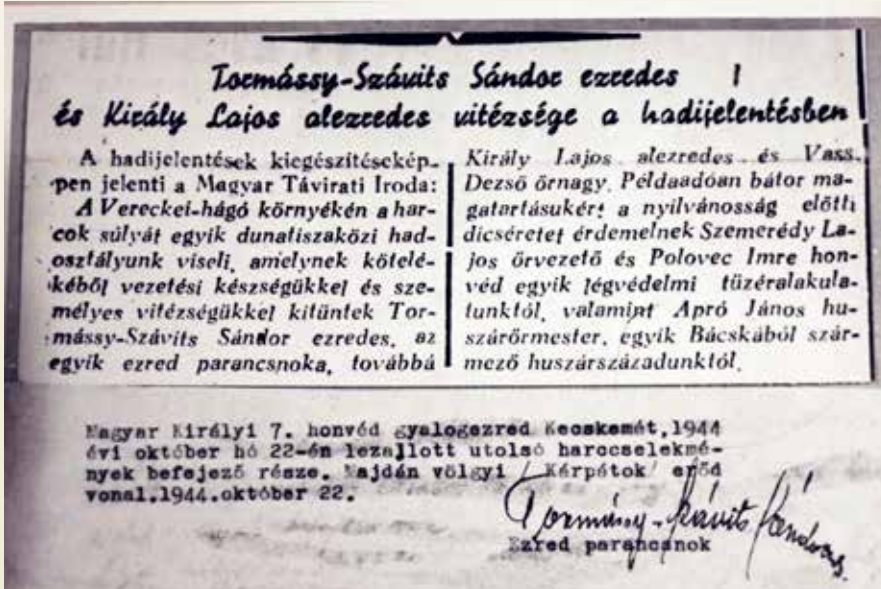 Tormássy-Szávits Sándor ezredes
és Király Lajos alezredes vitézsége a hadijelentésben
A hadijelentések kiegészitésekép-
pen jelenti a Magyar Távirati Iroda:
A Vereckei-hágó környékén a har-
cok súlyát egyik dunatiszaközi had-
osztályunk viseli, amelynek kötelé-
kéből vezetési készségükkel és sze-
mélyes vitézségükkel kitüntek Tor-
mássy-Szávits Sándor ezredes, az
egyik ezred parancsnoka, továbbá
Király Lajos alezredes és Vass
Dezső őrnagy. Példaadóan bátor ma-
gatartásukért a nyilvánosság előtti
dicséretet érdemelnek Szemerédy La-
jos őrvezető és Polovec Imre hon-
véd egyik légvédelmi tüzéralakula-
tunktól, valamint Apró János hu-
szárőrmester, egyik Bácskából szár-
mező huszárszázadunktól.
Magyar Királyi 7. honvéd gyalogezred Kecskemét,1944
évi október hó 22-én lezajlott utolsó harccselekmé-
nyek befejező része. Majdán völgyi / Kárpátok/ erőd
vonal.1944.október 22.
Tormássy-Szávits Sándor
Ezred parancsnok